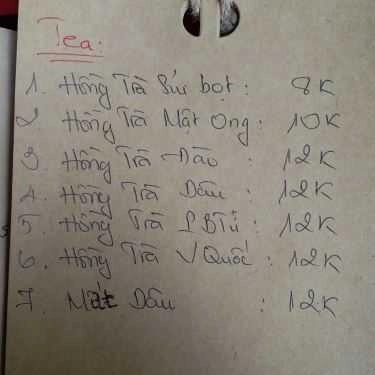 Tea:
1. Hồng Trà Sủi bọt: 8K
2. Hồng Trà Mật Ong: 10K
3. Hồng Trà Đào 12K
4. Hồng Trà Dâu: 12K
5. Hồng Trà 12K
6. Hồng Trà V Quốc: 12K
7. Mứt Dâu : 12K